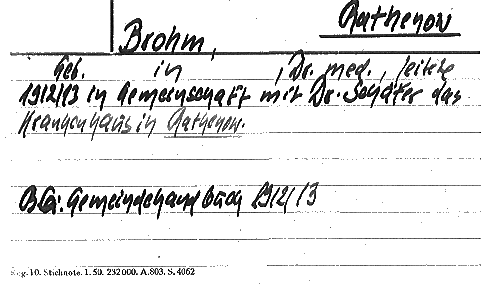 Rathenow
Brohm,
Geb. in , Dr. med., leitete
1912/13 in Gemeinschaft mit Dr. Schäfer das
Krankenhaus in Rathenow.
Gemeindehandbuch 1912/13
Reg. 10. Stichnote. 1. 50. 232000. A.803. S. 4062